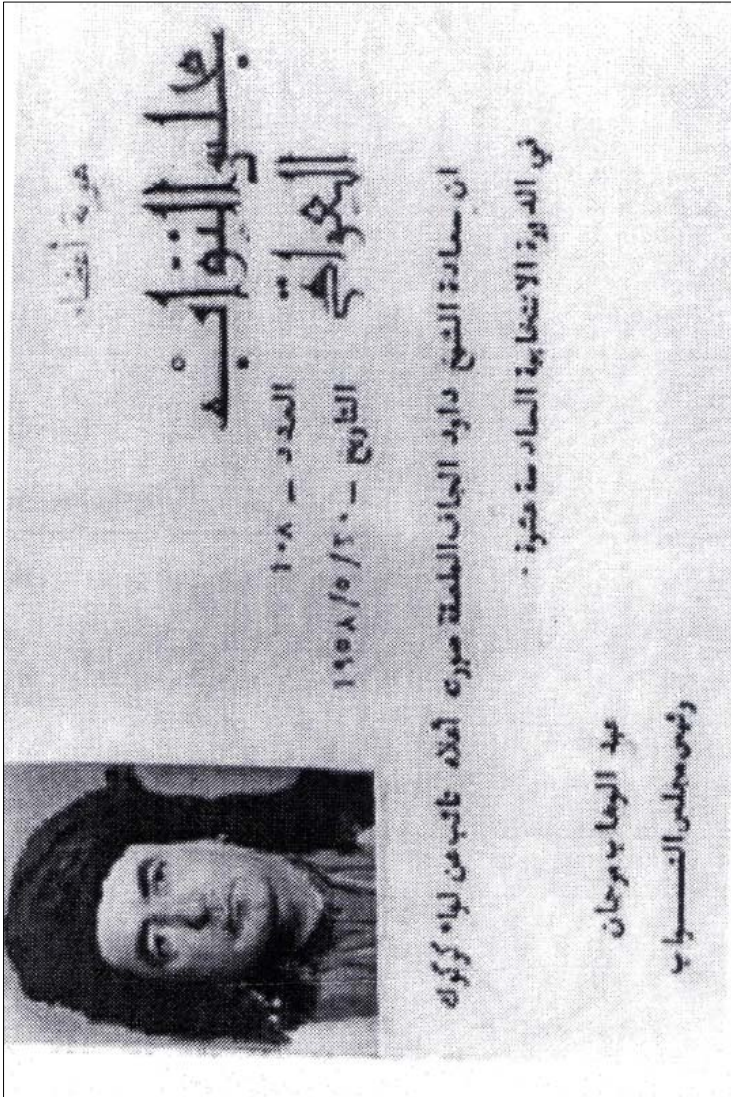 هوية أعضاء
مجلس النواب
العراقي
العدد – ١٠٨
التاريخ – ١٩٥٨/٥/٢٠
ان سعادة الشيخ داود الجاف الملصقة صورته أعلاه نائب عن لواء كركوك
في الدورة الانتخابية السادسة عشرة ٠
عبد الوهاب مرجان
رئيس مجلس النــواب